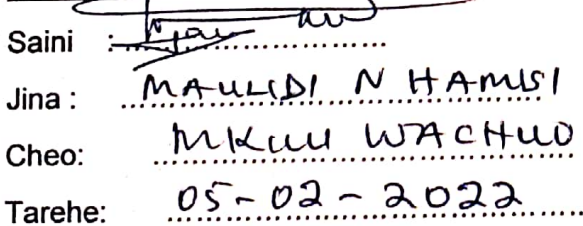 Saini :
Jina : MAULIDI N HAMISI
Cheo: MKUU WACHUO
Tarehe: 05-02-2022